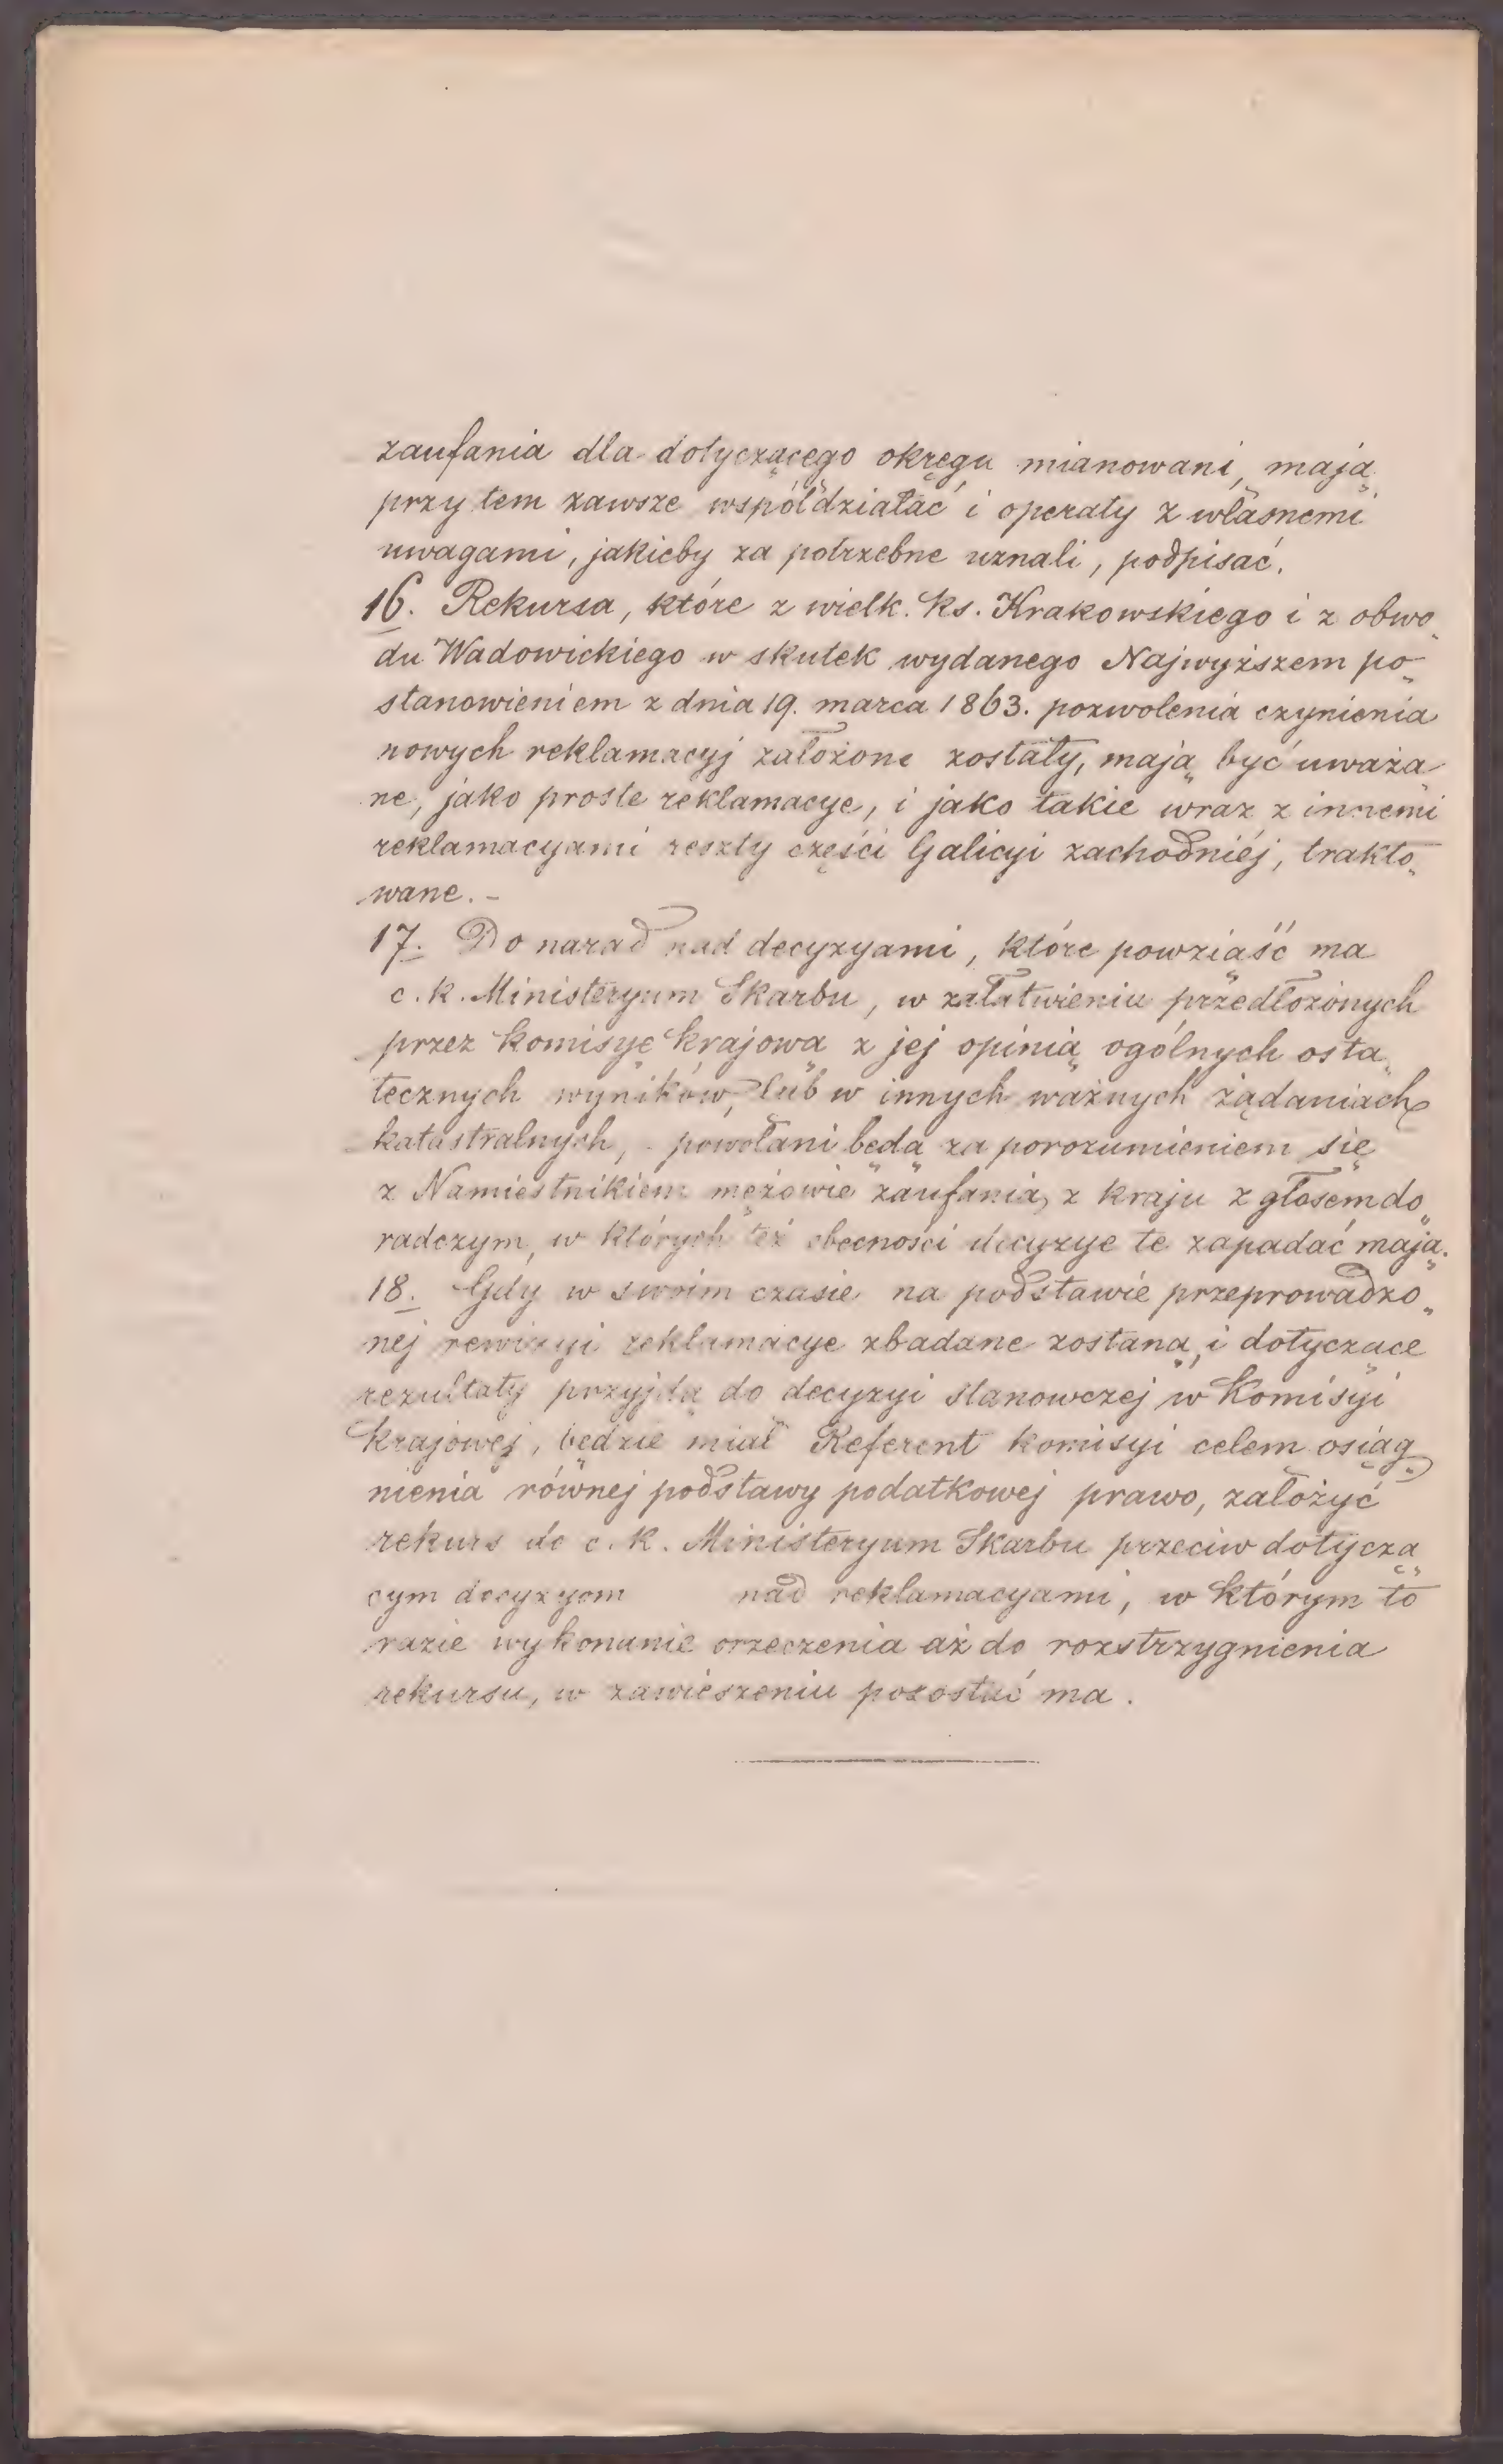 zaufania dla dotyczącego okręgu mianowani, mają
przy tem zawsze współdziałać i operaty z własnemi
uwagami, jakieby za potrzebne uznali, podpisać.
16. Rekursa, które z wielk. ks. Krakowskiego i z obwo„
du Wadowickiego w skutek wydanego Najwyższem po„
stanowieniem z dnia 19. marca 1863. pozwolenia czynienia
nowych reklamacyj założone zostały, mają być uważa
ne, jako proste reklamacye, i jako takie wraz z innemi
reklamacyami reszty części Galicyi zachodniéj, trakto„
wane. -
17. Do narad nad decyzyami, które powziąść ma
c. k. Ministeryum Skarbu, w załatwieniu przedłożonych
przez komisyę krajową z jej opinią ogólnych osta„
tecznych wyników, lub w innych ważnych żądaniach
katastralnych, - powołani będą za porozumieniem się
z Namiestnikiem mężowie zaufania z kraju z głosem do„
radczym, w których też obecności decyzye te zapadać mają.
18. Gdy w swoim czasie na podstawie przeprowadzo„
nej rewizyi reklamacye zbadane zostaną, i dotyczące
rezultaty przyjdą do decyzyi stanowczej w Komisyi
krajowej, będzie miał Referent komisyi celem osiąg„
nienia równej podstawy podatkowej prawo, założyć
rekurs do c. k. Ministeryum Skarbu przeciw dotyczą„
cym decyzyom nad reklamacyami, w którym to
razie wykonanie orzeczenia aż do rozstrzygnienia
rekursu, w zawieszeniu pozostać ma.